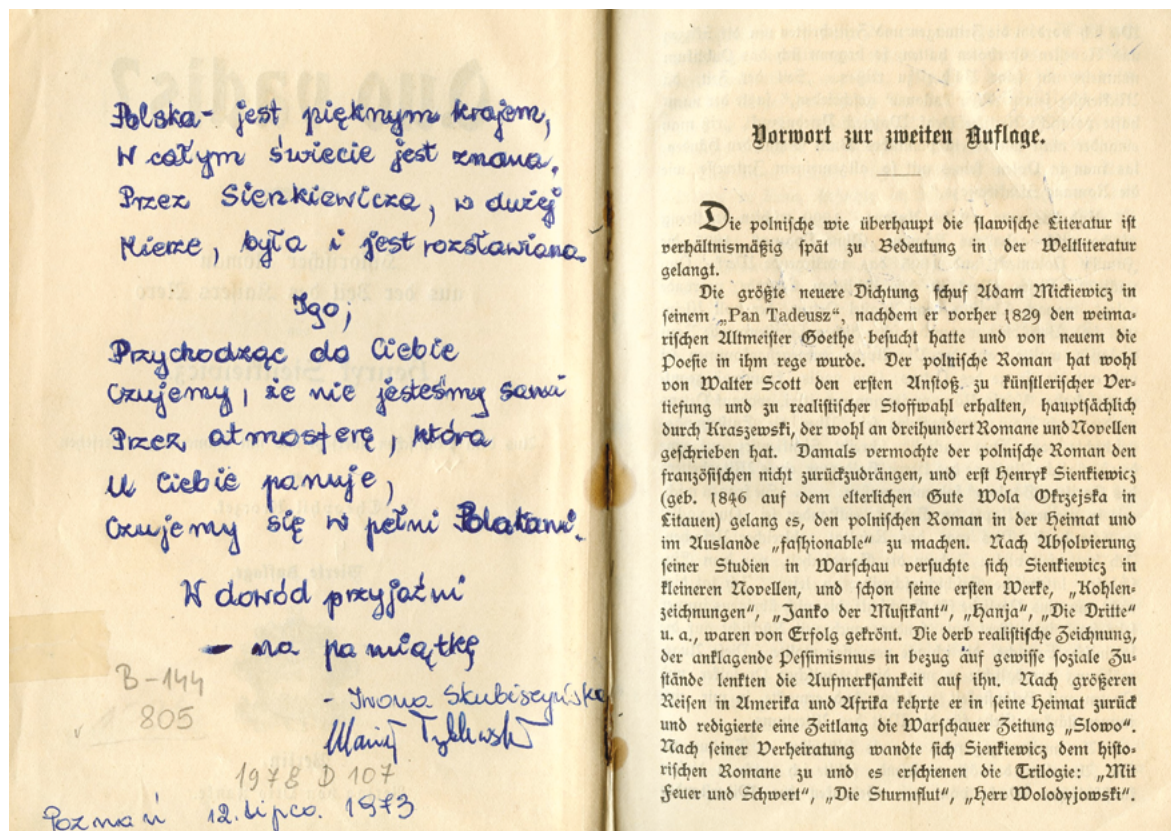 Polska - jest pięknym krajem,
W całym świecie jest znana.
Przez Sienkiewicza, w dużej
Mierze, była i jest rozsławiana.
Igo,
Przychodząc do Ciebie
Czujemy, że nie jesteśmy sami
Przez atmosferę, która
U Ciebie panuje,
Czujemy się w pełni Polakami.
W dowód przyjaźni
- na pamiątkę
- Iwona Skubiszyńska
B-144
805
1978 D 107
Poznań 12. lipca. 1973
Vorwort zur zweiten Auflage.
Die polnische wie überhaupt die slawische Literatur ist
verhältnismäßig spät zu Bedeutung in der Weltliteratur
gelangt.
Die größte neuere Dichtung schuf Adam Mickiewicz in
seinem „Pan Tadeusz“, nachdem er vorher 1829 den weima-
rischen Altmeister Goethe besucht hatte und von neuem die
Poesie in ihm rege wurde. Der polnische Roman hat wohl
von Walter Scott den ersten Anstoß zu künstlerischer Ver-
tiefung und zu realistischer Stoffwahl erhalten, hauptsächlich
durch Kraszewski, der wohl an dreihundert Romane und Novellen
geschrieben hat. Damals vermochte der polnische Roman den
französischen nicht zurückzudrängen, und erst Henryk Sienkiewicz
(geb. 1846 auf dem elterlichen Gute Wola Okrzejska in
Litauen) gelang es, den polnischen Roman in der Heimat und
im Auslande „fashionable“ zu machen. Nach Absolvierung
seiner Studien in Warschau versuchte sich Sienkiewicz in
kleineren Novellen, und schon seine ersten Werke, „Kohlen-
zeichnungen“, „Janko der Musikant“, „Hanja“, „Die Dritte“
u. a., waren von Erfolg gekrönt. Die derb realistische Zeichnung,
der anklagende Pessimismus in bezug auf gewisse soziale Zu-
stände lenkten die Aufmerksamkeit auf ihn. Nach größeren
Reisen in Amerika und Afrika kehrte er in seine Heimat zurück
und redigierte eine Zeitlang die Warschauer Zeitung „Slowo“.
Nach seiner Verheiratung wandte sich Sienkiewicz dem histo-
rischen Romane zu und es erschienen die Trilogie: „Mit
Feuer und Schwert“, „Die Sturmflut“, „Herr Wolodyjowski“.